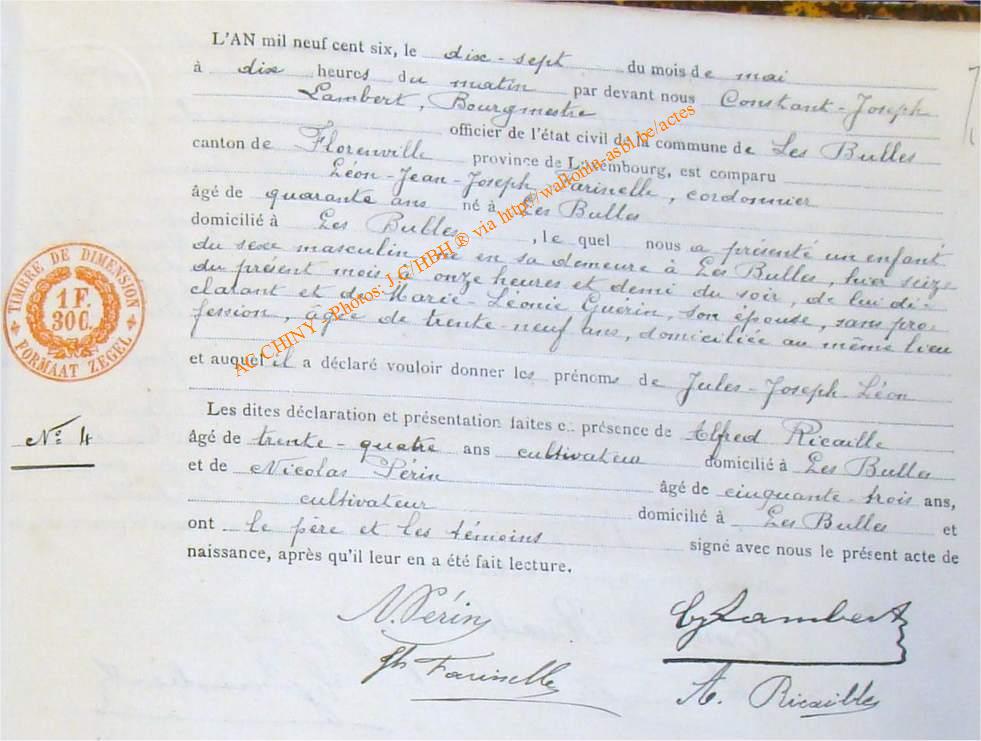 L'AN mil neuf cent six, le dix-sept du mois de mai
à dix heures du matin par devant nous Constant-Joseph
Lambert, Bourgmestre
officier de l'état civil de la commune de Les Bulles
canton de Florenville province de Luxembourg, est comparu
Léon-Jean-Joseph Farinelle, cordonnier
âgé de quarante ans né à Les Bulles
domicilié à Les Bulles, le quel nous a présenté un enfant
du sexe masculin né en sa demeure à Les Bulles, hier seize
du présent mois à onze heures et demi du soir de lui dé-
clarant et de Marie-Léonie Guérin, son épouse, sans pro-
fession, âgée de trente-neuf ans, domiciliée au même lieu
et auquel il a déclaré vouloir donner les prénoms de Jules-Joseph-Léon
Les dites déclaration et présentation faites en présence de Alfred Ricaille
âgé de trente-quatre ans cultivateur domicilié à Les Bulles
et de Nicolas Périn âgé de cinquante-trois ans,
cultivateur domicilié à Les Bulles et
ont le père et les témoins signé avec nous le présent acte de
naissance, après qu'il leur en a été fait lecture.
N. Périn
Lambert
Farinelle
A. Ricaille
Nº 4
TIMBRE DE DIMENSION
1 F.
30 C.
FORMAAT ZEGEL
AC CHINY - Photos: J.C/HBH ® via http://wallonia-asbl.be/actes